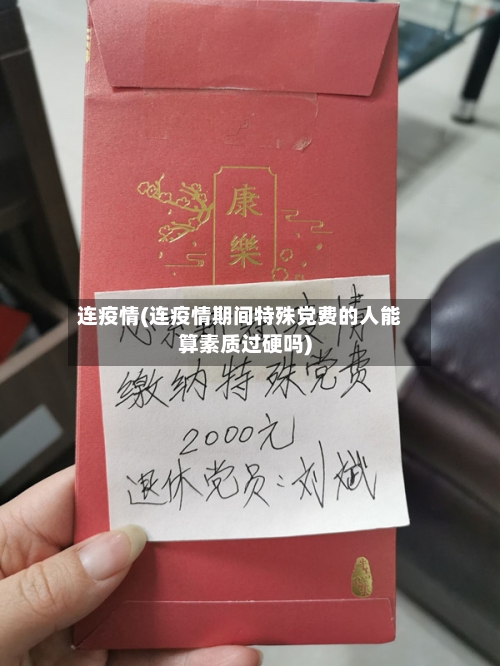 康
樂
连疫情(连疫情期间特殊党费的人能
算素质过硬吗)
缴纳特殊党费
2000元
退休党员:刘斌